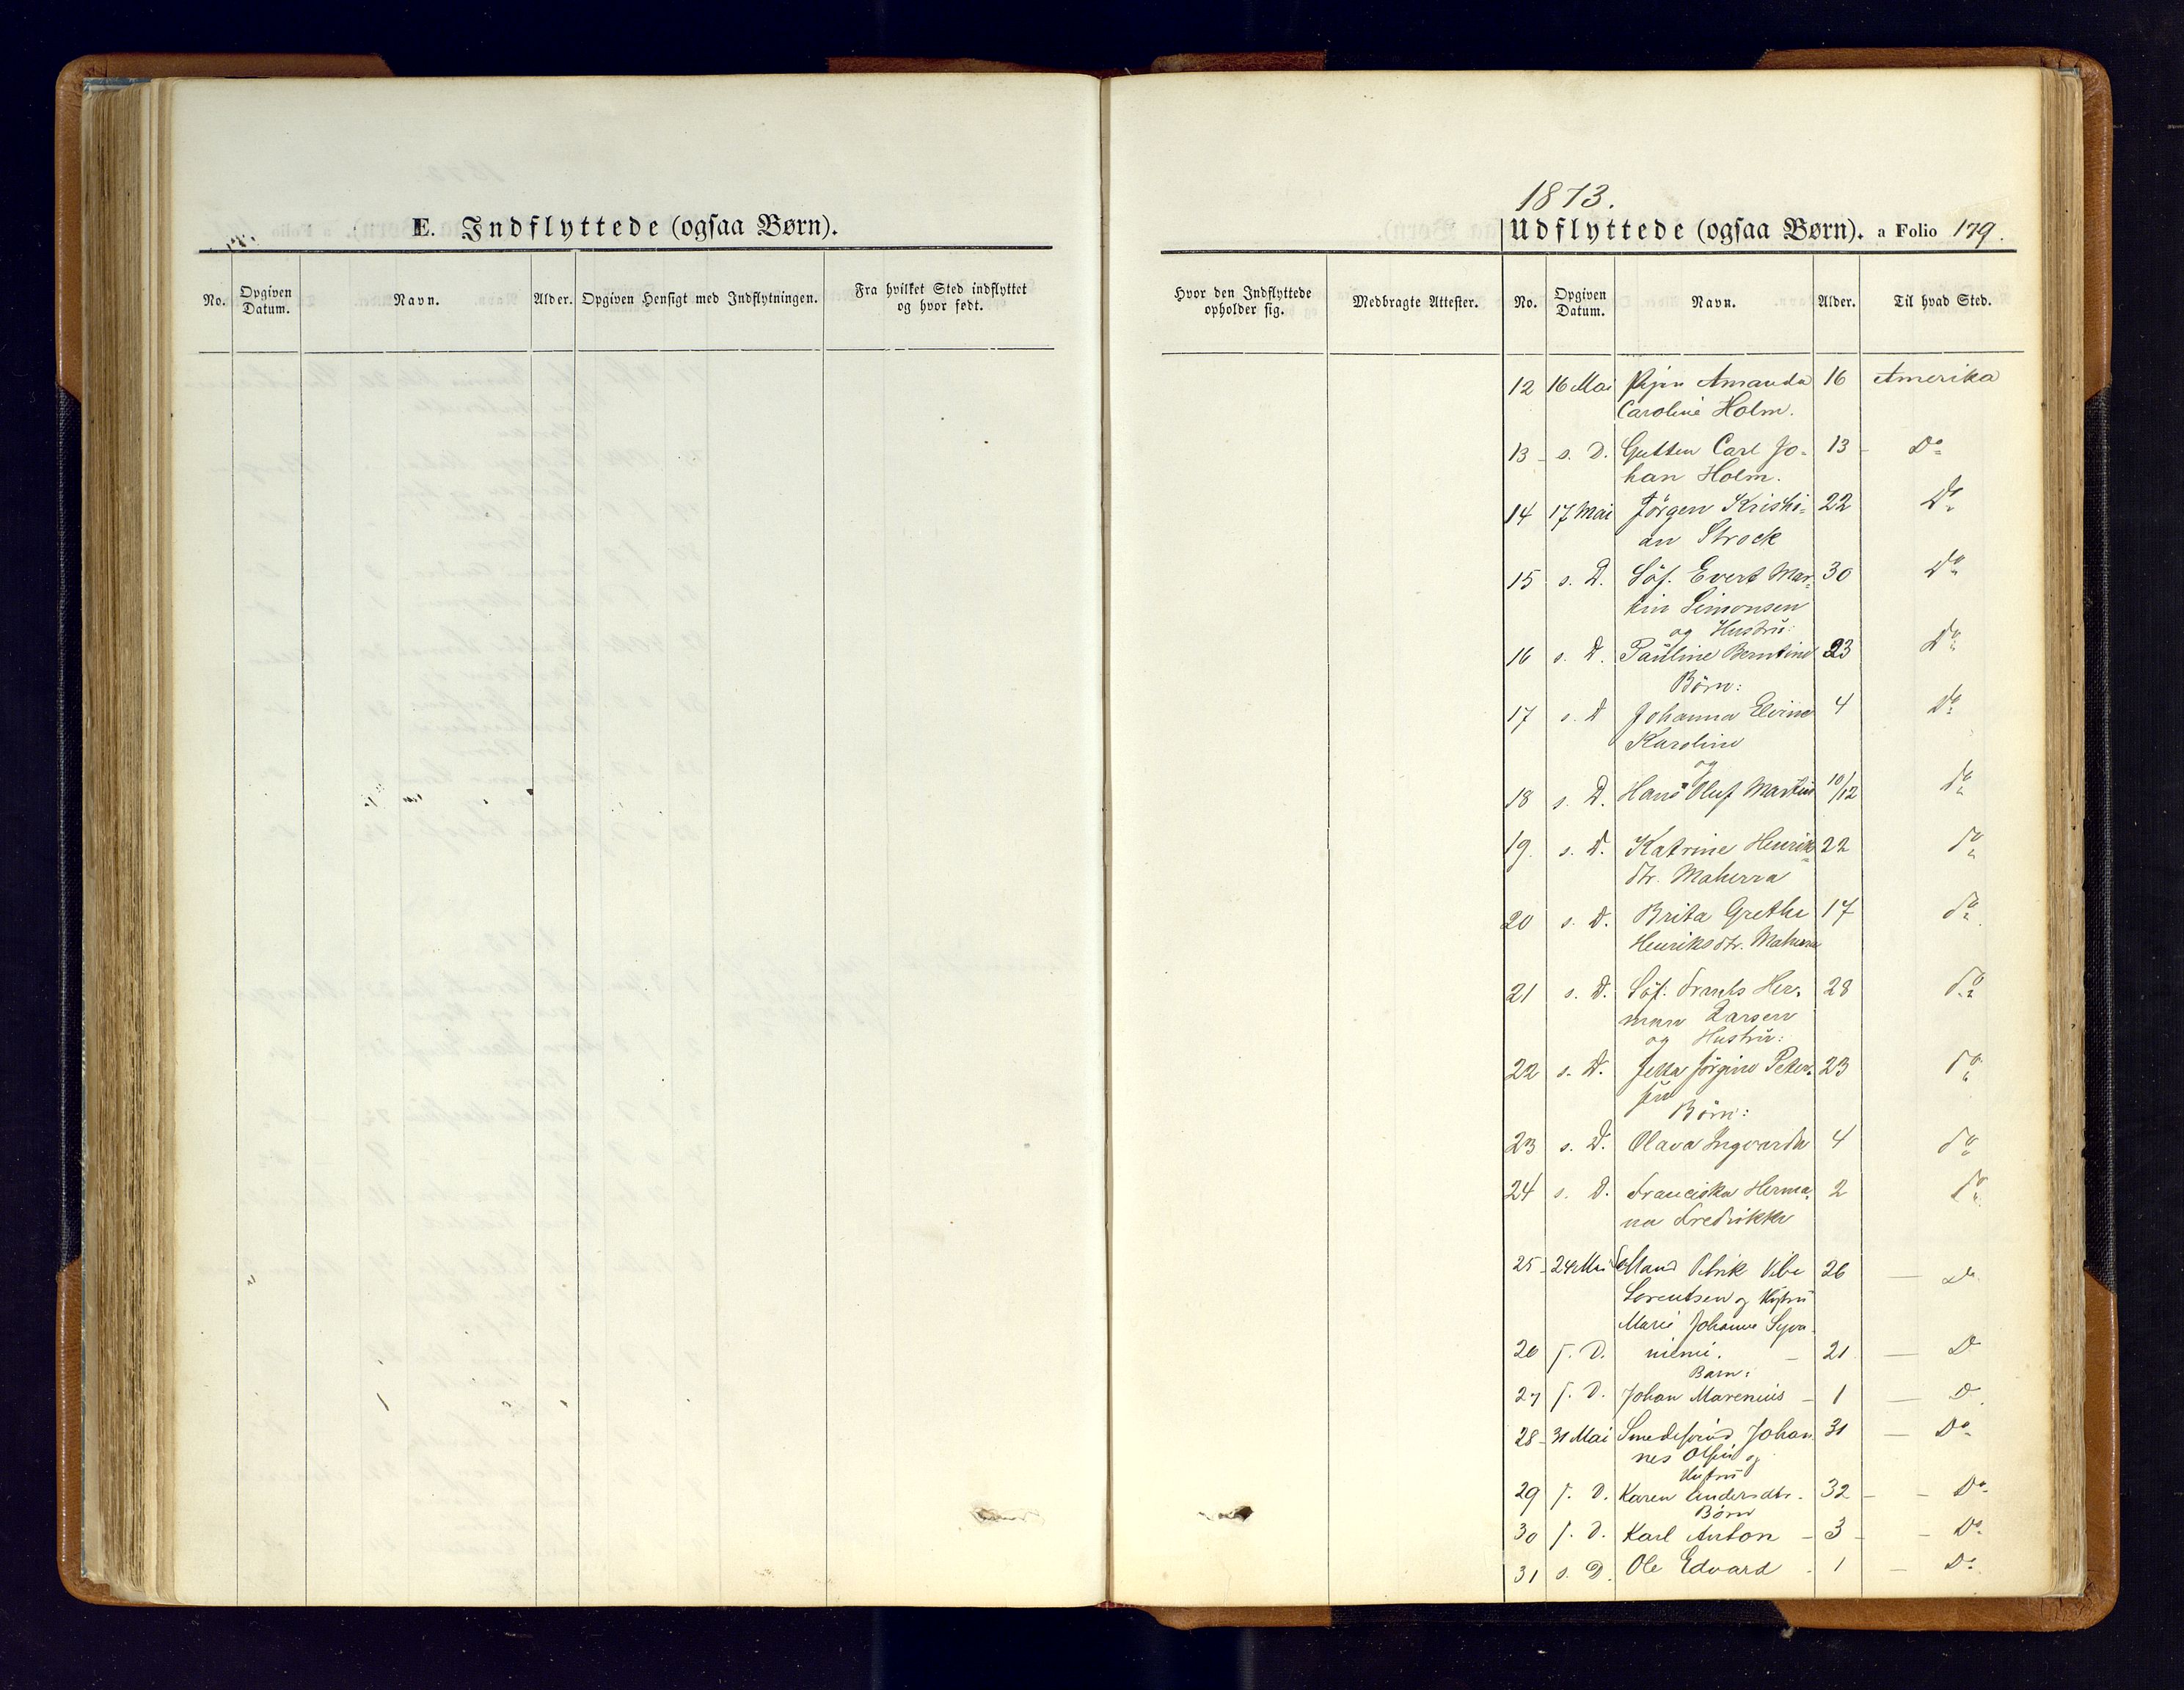 E. Indflyttede (ogsaa Børn).
No. Opgiven Datum. Navn. Alder. Opgiven Hensigt med Indflytningen. Fra hvilket Sted indflyttet og hvor født.
1873.
Udflyttede (ogsaa Børn). a Folio 179.
Hvor den Indflyttede opholder sig. Medbragte Attester. No. Opgiven Datum. Navn. Alder. Til hvad Sted.
12 16 Mai Pigen Amanda 16 Amerika
Caroline Holm.
13 - s. D. Gutten Carl Jo- 13 - Do
han Holm.
14 17 Mai Jörgen Kristi- 22 Do
an Strock
15 s. D. Löf. Evert Mar- 30 Do
tin Simonsen
og Hustru:
16 s. D. Pauline Berntine 23 Do
Börn:
17 s. D Johanna Elvine 4 Do
Karoline
og
18 s. D. Hans Oluf Martin 10/12 do
19. s. D. Katrine Henrik- 22 do
dtr. Maherra
20 s. D. Brita Grethe 17 do
Henriksdtr. Maherra
21 s. D. Löf. Frants Her- 28 do
man Larsen
og Hustru:
22 s. D. Jetta Jörgine Peter- 23 do
sen
Börn:
23 s. D. Olava Ingvarda 4 do
24 s. D. Franciska Herma- 2 do
na Fredrikke
25 - 24 Mai Petrik Vibe 26 — Do
Lorentsen og Hustru
Marie Johanne
26 s. D. niemi. - 21 — D
Barn:
27 s. D. Johan Marenius - 1 — D
28 - 31 Mai Smedesvend Johan 31 — Do
nes Olsen og
Hustru
29 s. D. Karen Andersdtr. - 32 - - Do
Börn
30 s. D. Karl Anton - 3 - - Do
31 s. D. Ole Edvard - 1 - Do